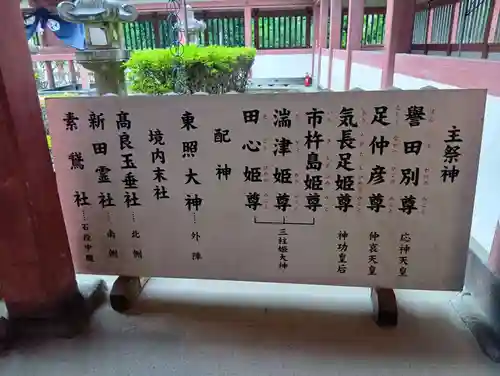 主祭神
誉田別尊 応神天皇
足仲彦尊 仲哀天皇
気長足姫尊 神功皇后
市杵島姫尊
湍津姫尊
田心姫尊
三柱姫大神
配神
東照大神 外陣
境内末社
高良玉垂社 北側
新田霊社 南側
素鵞社 石段中腹